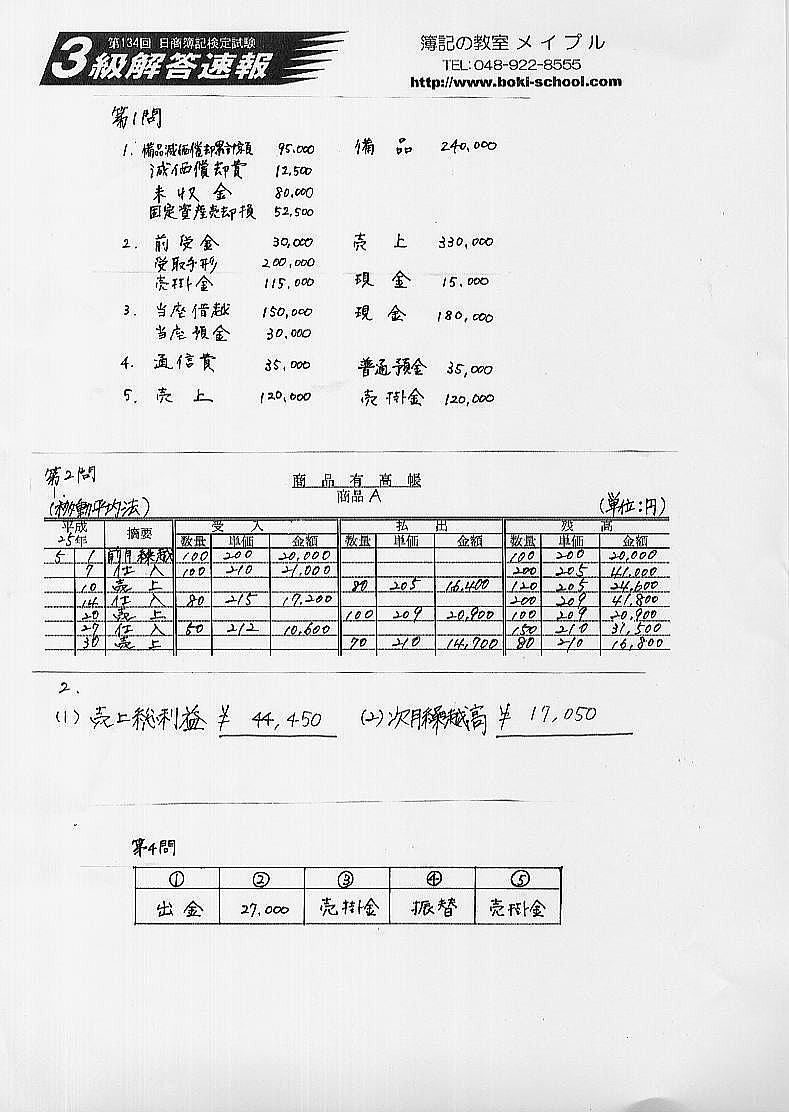 第134回 日商簿記検定試験
3級解答速報
簿記の教室 メイプル
TEL:048-922-8555
http://www.boki-school.com
第1問
1. 備品減価償却累計額 95,000 備品 240,000
減価償却費 12,500
未収金 80,000
固定資産売却損 52,500
2. 前受金 30,000 売上 330,000
受取手形 200,000
売掛金 115,000 現金 15,000
3. 当座借越 150,000 現金 180,000
当座預金 30,000
4. 通信費 35,000 普通預金 35,000
5. 売上 120,000 売掛金 120,000
第2問
1.
商品有高帳
(移動平均法) 商品A (単位:円)
平成25年 摘要 受入 払出 残高
数量 単価 金額 数量 単価 金額 数量 単価 金額
5 1 前月繰越 100 200 20,000 100 200 20,000
7 仕入 100 210 21,000 200 205 41,000
10 売上 80 205 16,400 120 205 24,600
14 仕入 80 215 17,200 200 209 41,800
20 売上 100 209 20,900 100 209 20,900
27 仕入 50 212 10,600 150 210 31,500
30 売上 70 210 14,700 80 210 16,800
2.
(1) 売上総利益 ¥ 44,450 (2) 次月繰越高 ¥ 17,050
第4問
① ② ③ ④ ⑤
出金 27,000 売掛金 振替 売掛金